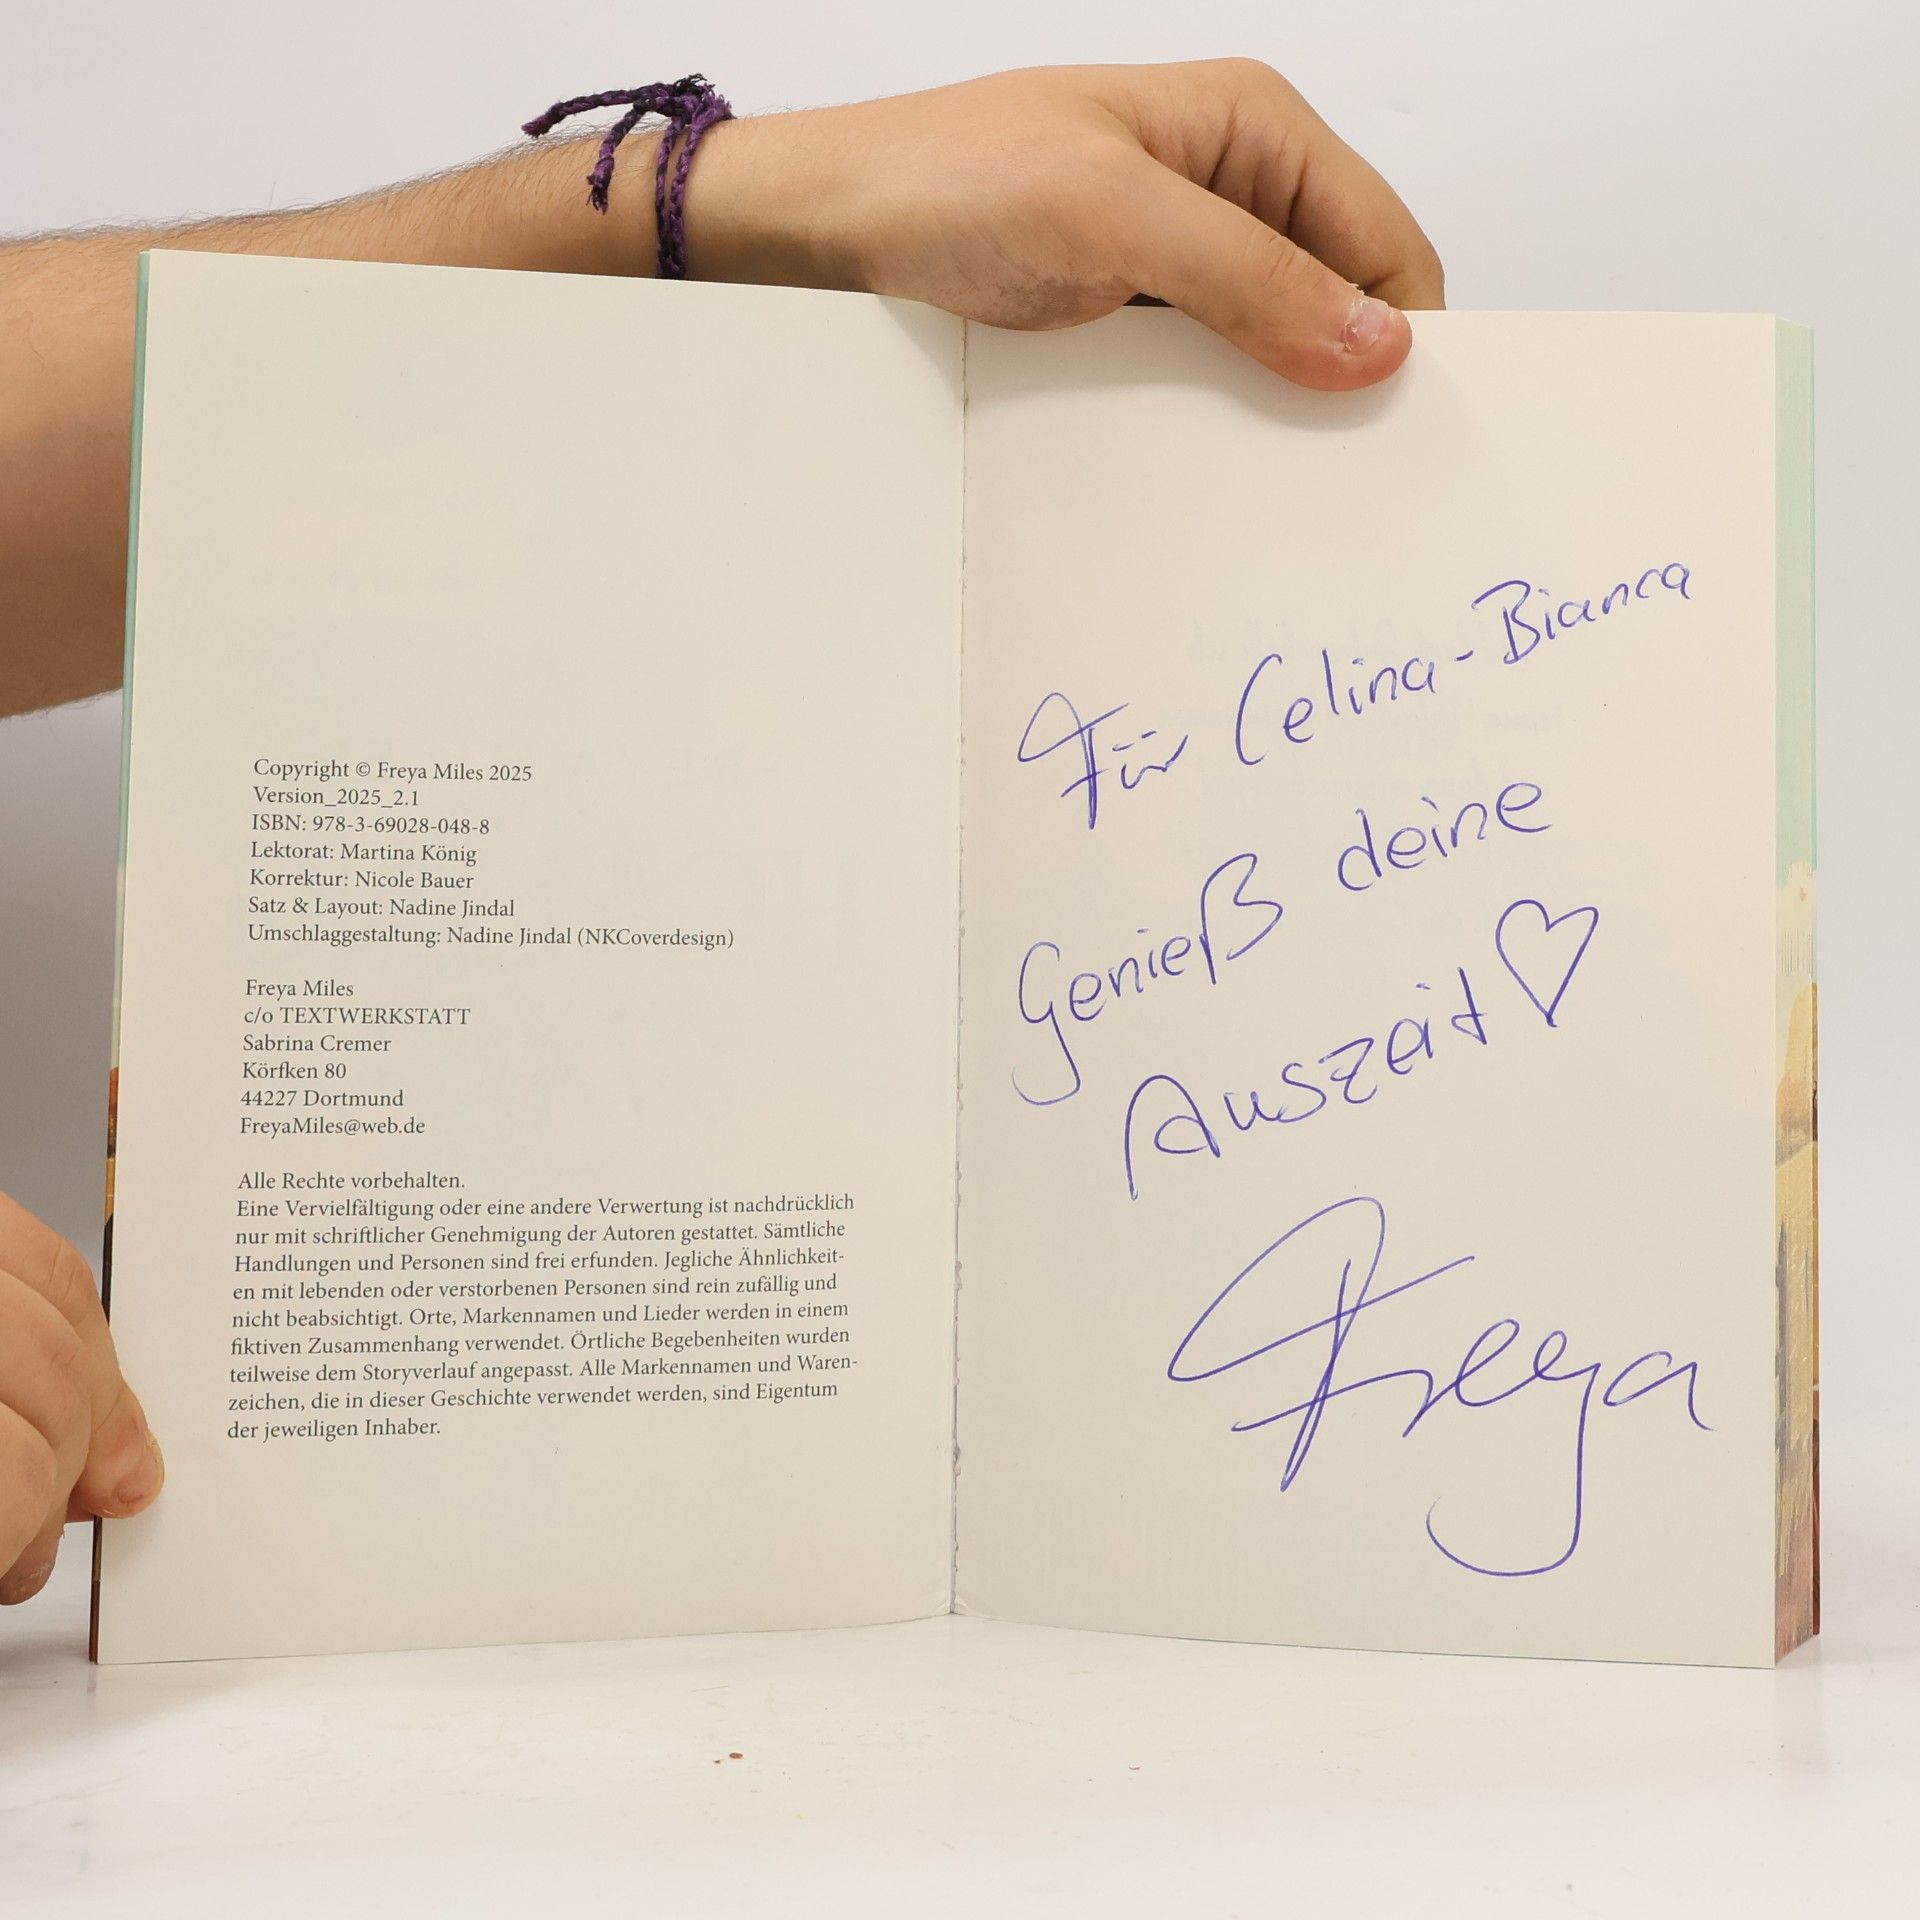 Copyright © Freya Miles 2025
Version_2025_2.1
ISBN: 978-3-69028-048-8
Lektorat: Martina König
Korrektur: Nicole Bauer
Satz & Layout: Nadine Jindal
Umschlaggestaltung: Nadine Jindal (NKCoverdesign)
Freya Miles
c/o TEXTWERKSTATT
Sabrina Cremer
Körfken 80
44227 Dortmund
FreyaMiles@web.de
Alle Rechte vorbehalten.
Eine Vervielfältigung oder eine andere Verwertung ist nachdrücklich
nur mit schriftlicher Genehmigung der Autoren gestattet. Sämtliche
Handlungen und Personen sind frei erfunden. Jegliche Ähnlichkeit-
en mit lebenden oder verstorbenen Personen sind rein zufällig und
nicht beabsichtigt. Orte, Markennamen und Lieder werden in einem
fiktiven Zusammenhang verwendet. Örtliche Begebenheiten wurden
teilweise dem Storyverlauf angepasst. Alle Markennamen und Waren-
zeichen, die in dieser Geschichte verwendet werden, sind Eigentum
der jeweiligen Inhaber.
Für Celina-Bianca
Genieß deine
Auszeit ♡
Freya